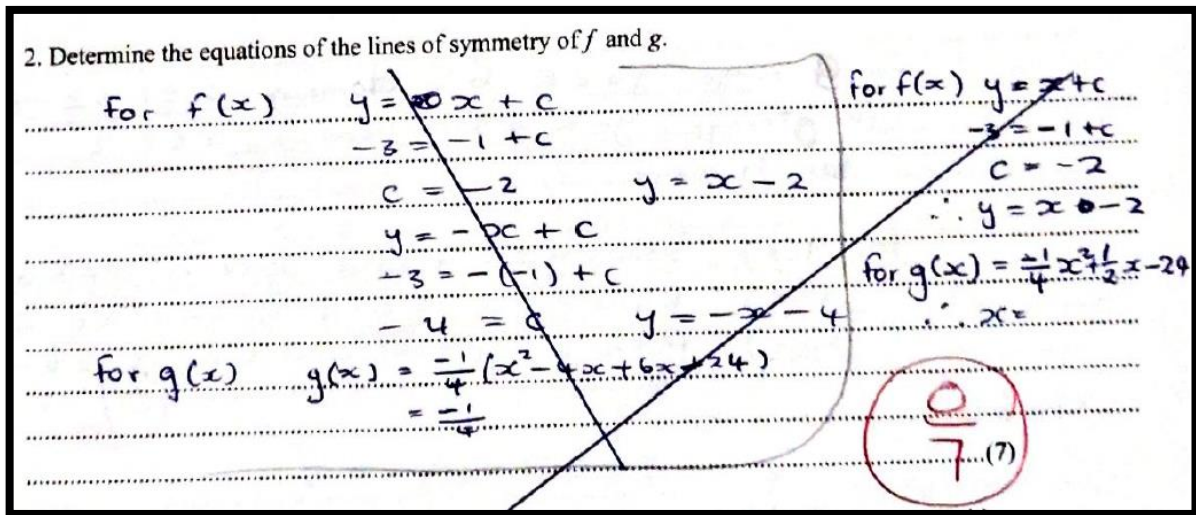 2. Determine the equations of the lines of symmetry of f and g.
for f(x) y = x + c
-3 = -1 + c
c = -2 y = x - 2
y = -x + c
-3 = -(-1) + c
-4 = c y = -x - 4
for g(x) g(x) = -1/4 (x² - 4x + 6x - 24)
= -1/4
for f(x) y = x + c
-3 = -1 + c
c = -2
∴ y = x - 2
for g(x) = -1/4 x² + 1/2 x - 24
∴ x =
0/7
(7)